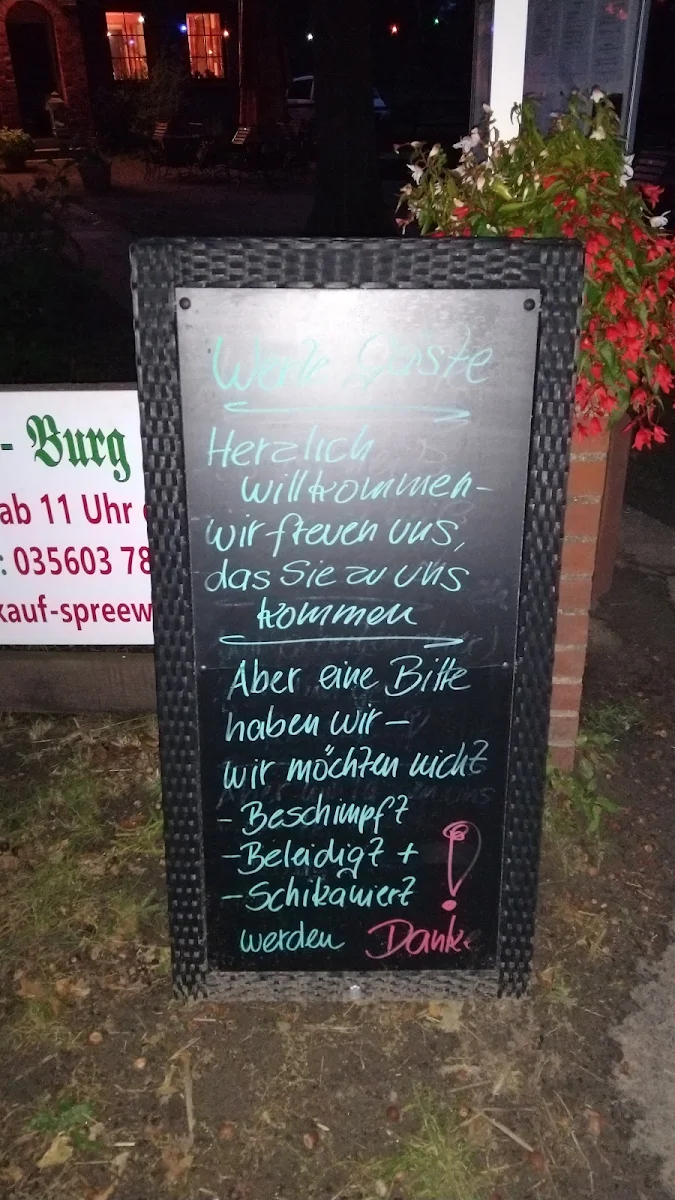 - Burg
ab 11 Uhr
: 035603 78
kauf-spreew
Werte Gäste
Herzlich
willkommen-
wir freuen uns,
das Sie zu uns
kommen
Aber eine Bitte
haben wir -
wir möchten nicht
- Beschimpft
- Beleidigt +
- Schikaniert
werden Danke !